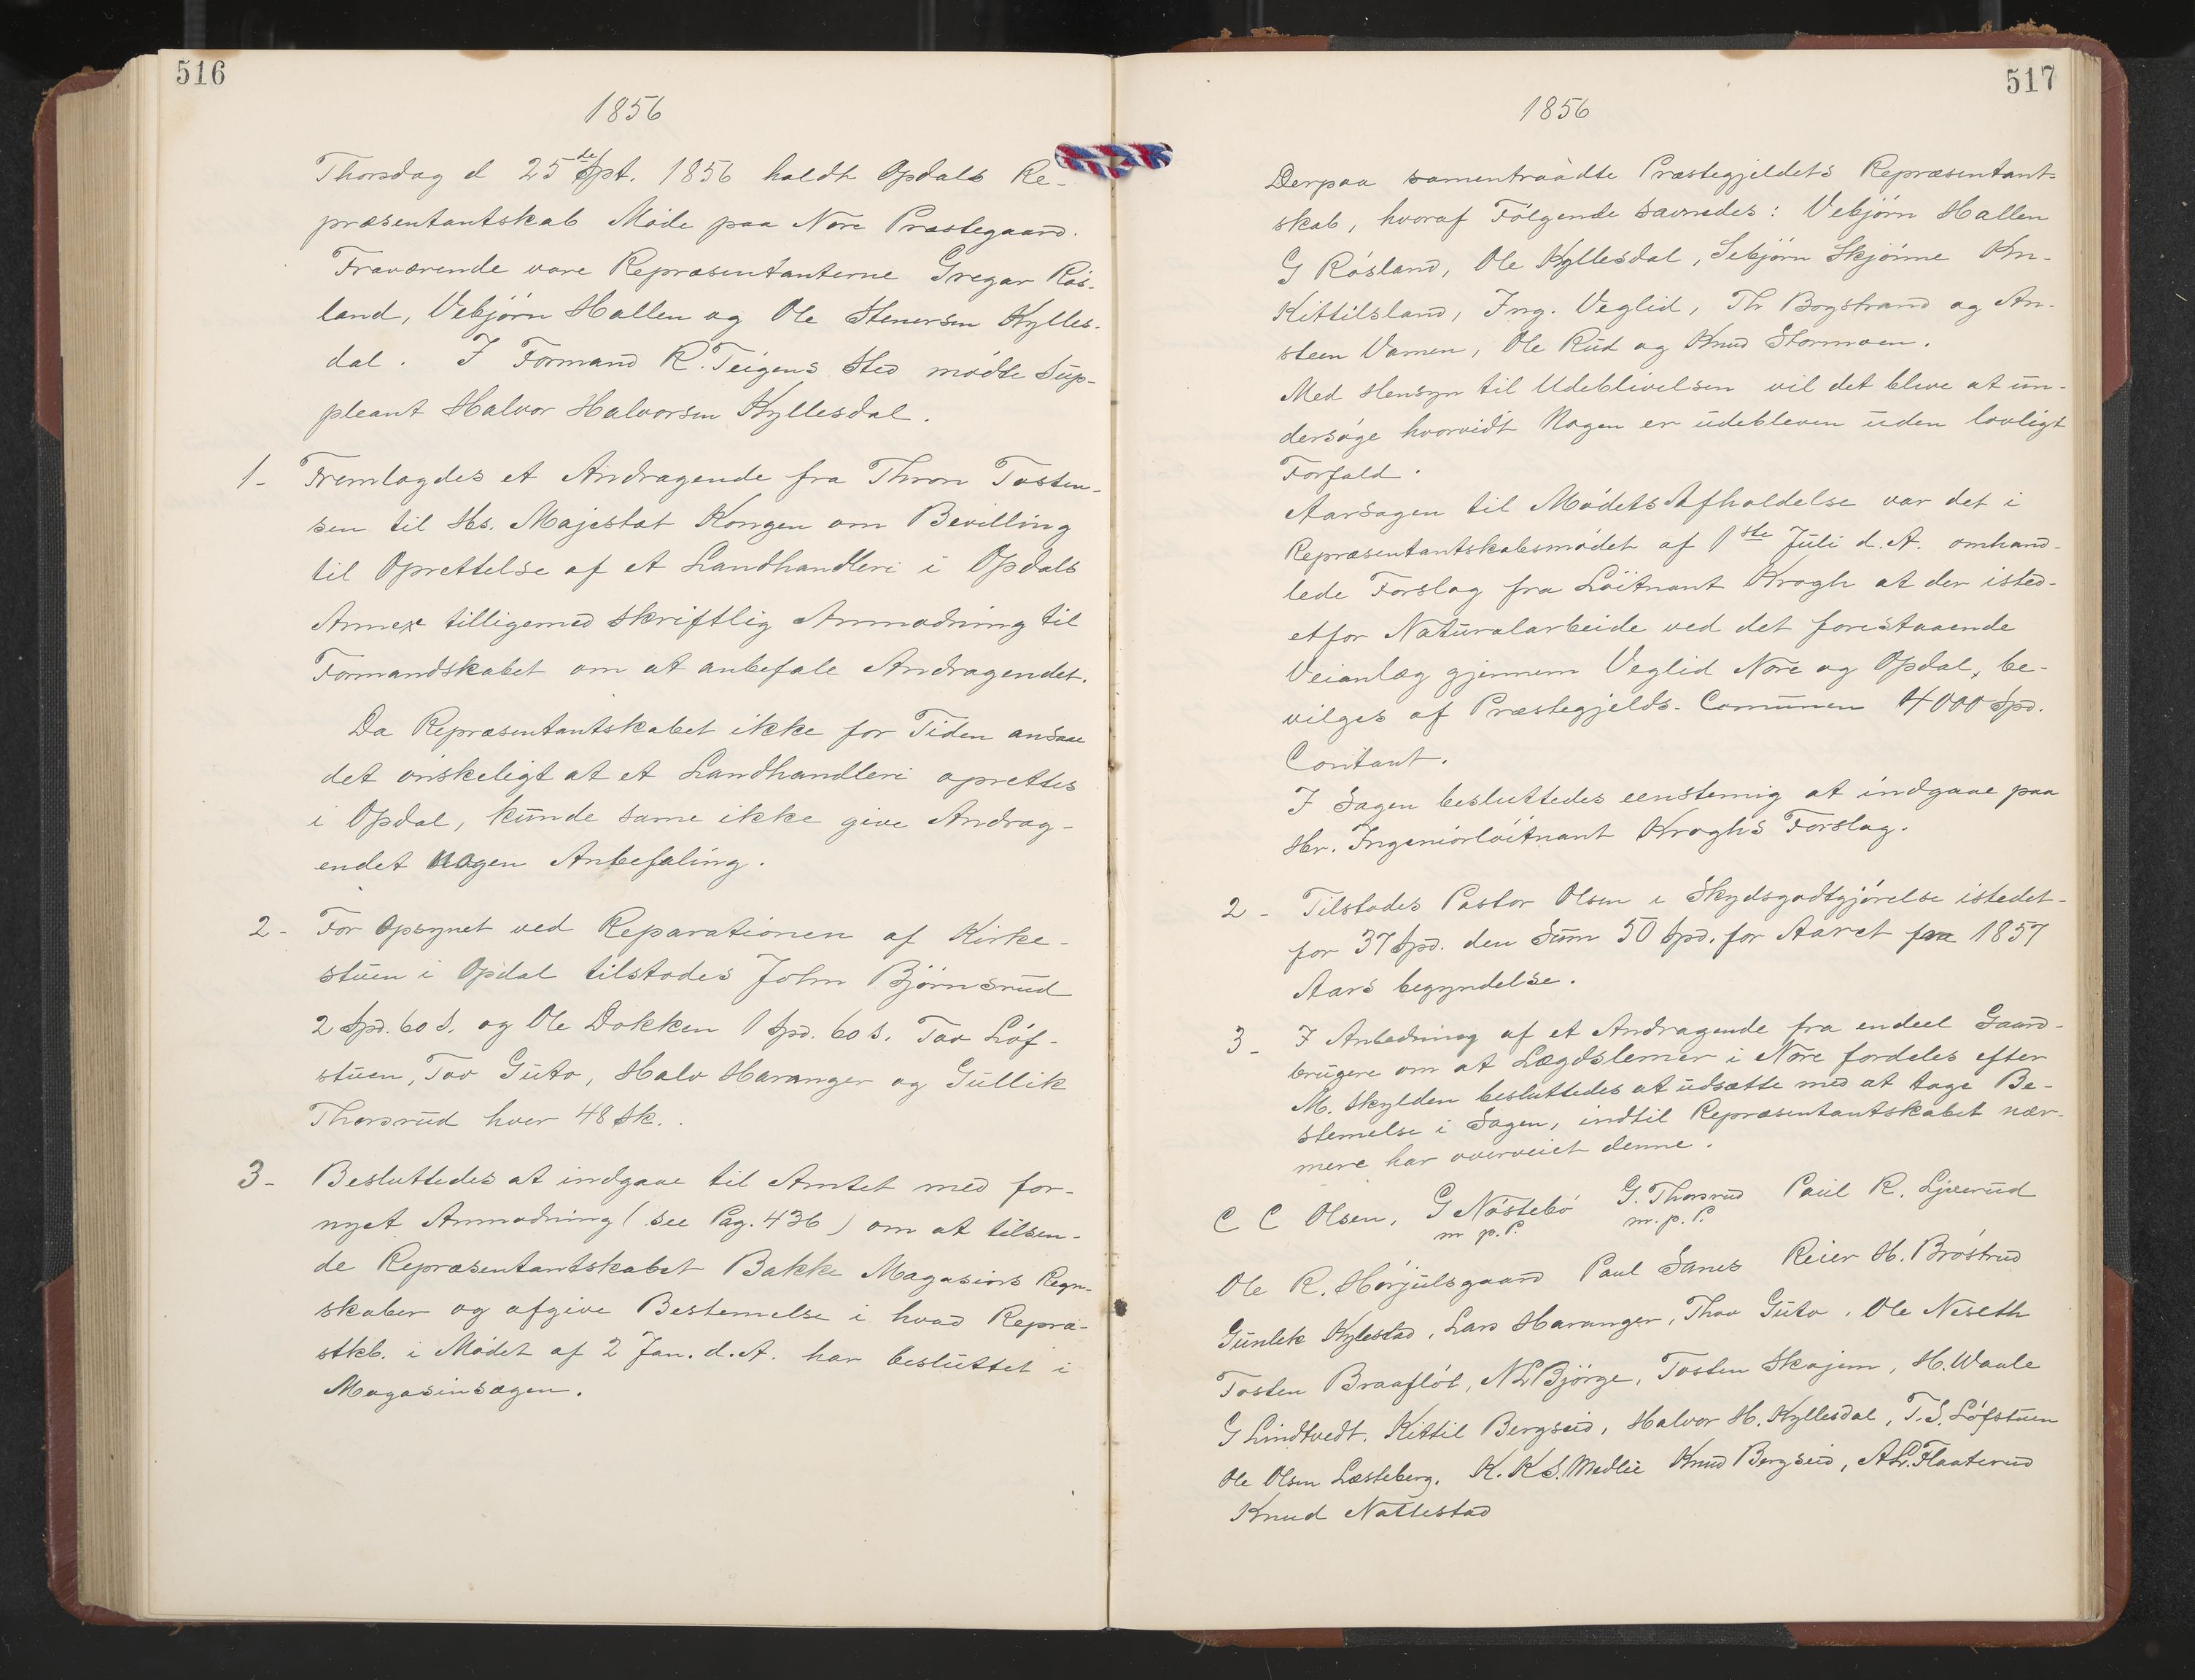 516
1856
Thorsdag d 25de Spt. 1856 holdt Opdals Re-
præsentantskab Møde paa Nore Præstegaard.
Fraværende vare Repræsentanterne Gregar Røs-
land, Vebjørn Hallen og Ole Stenersen Kylles-
dal. I Formand R. Teigens Sted mødte Sup-
pleant Halvor Halvorsen Kyllesdal.
1- Fremlagdes et Andragende fra Thron Tosten-
sen til Hs. Majestæt Kongen om Bevilling
til Oprettelse af et Landhandleri i Opdals
Annex tilligemed skriftlig Anmodning til
Formandskabet om at anbefale Andragendet.
Da Repræsentantskabet ikke for Tiden ansaae
det ønskeligt at et Landhandleri oprettes
i Opdal, kunde same ikke give Andrag-
endet nogen Anbefaling.
2- For Opsynet ved Reparationen af Kirke-
stuen i Opdal tilstodes John Bjørnsrud
2 Spd. 60 s. og Ole Dokken 1 Spd. 60 s. Tov Løf-
stuen, Tov Guto, Halv Haranger og Gullik
Thorsrud hver 48 Sk.
3- Besluttedes at indgaae til Amtet med for-
nyet Anmodning (see Pag. 436) om at tilsen-
de Repræsentantskabet Bakke Magasins Regn-
skaber og afgive Bestemelse i hvad Repræ-
stkb. i Mødet af 2 Jan. d. A. har besluttet i
Magasinsagen.
517
1856
Derpaa samentraadte Præstegjeldets Repræsentant-
skab, hvoraf Følgende savnedes: Vebjørn Hallen
G Røsland, Ole Kyllesdal, Sebjørn Skjønne Kn-
Kittilsland, Ing. Veglid, Th Bogstrand og An-
steen Vamen, Ole Rud og Knud Stormoen.
Med Hensyn til Udeblivelsen vil det blive at un-
dersøge hvorvidt Nogen er udebleven uden lovligt
Forfald.
Aarsagen til Mødets Afholdelse var det i
Repræsentantskabsmødet af 1ste Juli d. A. omhand-
lede Forslag fra Løitnant Krogh at der isted-
etfor Naturalarbeide ved det forestaaende
Veianlæg gjennem Veglid Nore og Opdal, be-
vilges af Præstegjelds-Comunen 4000 Spd.
Contant.
I Sagen besluttedes eenstemig at indgaae paa
Hr. Ingeniørløitnant Kroghs Forslag.
2- Tilstodes Pastor Olsen i Skydsgodtgjørelse istedet-
for 37 Spd. den Sum 50 Spd. for Aaret fra 1857
Aars begyndelse.
3- I Anledning af et Andragende fra endeel Gaard-
brugere om at Lægdslemer i Nore fordeles efter
M. Skylden besluttedes at udsætte med at tage Be-
stemelse i Sagen, indtil Repræsentantskabet nær-
mere har overveiet denne.
C C Olsen, G Nøstebø G. Thorsrud Paul R. Ljøterud
m p. P. m. p. P.
Ole R. Hørjulsgaard Paul Sanes Reier H. Brøstrud
Gunlek Kylestad, Lars Haranger, Thov Guto, Ole Neseth
Tosten Braafløt, N L Bjørge, Tosten Skajem, H. Waale
G Lindtvedt. Kittil Bergseid, Halvor H. Kyllesdal, T. S. Løfstuen
Ole Olsen Læsteberg. K. K S. Medlie Knud Bergseid, A L. Flaaterud
Knud Nattestad